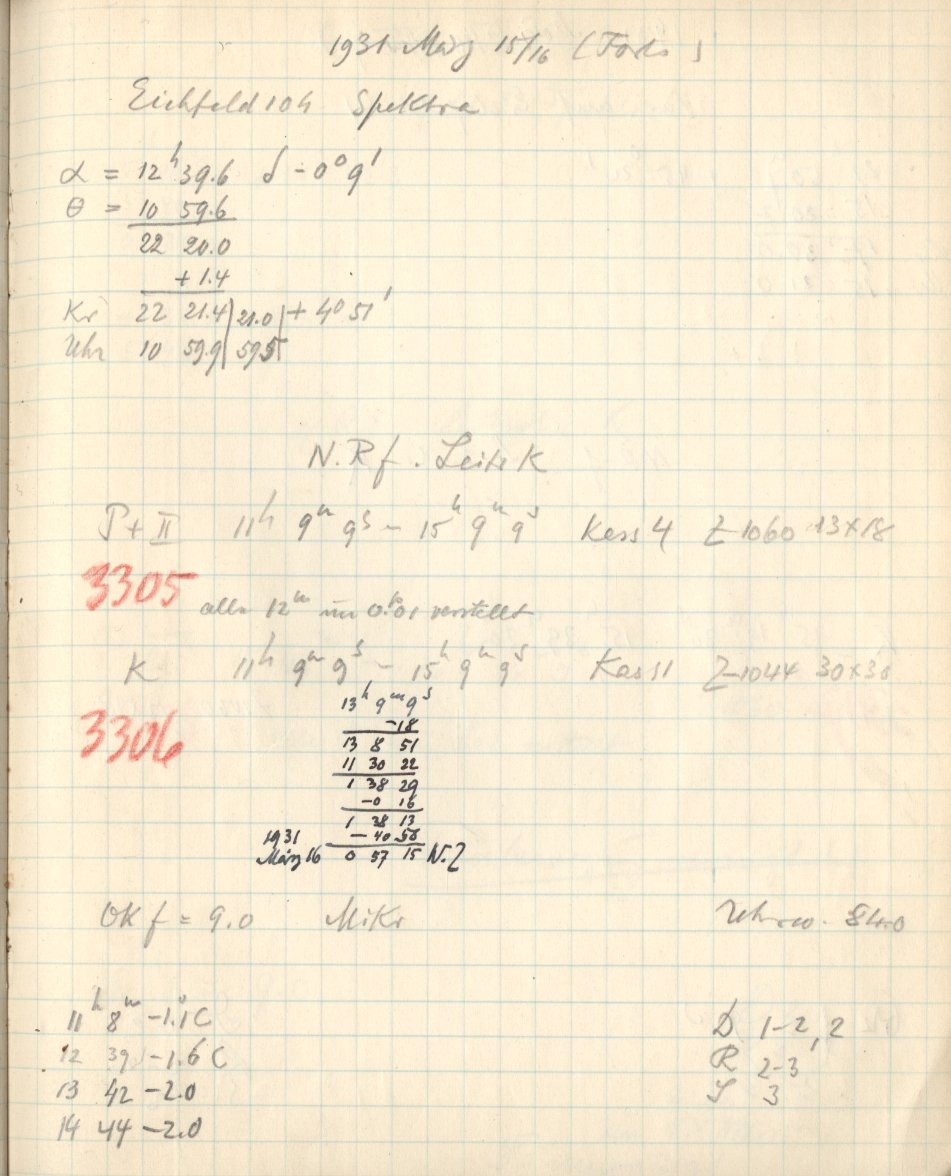 1931 März 15/16 (Forts )
Eichfeld 104 Spektra
α = 12h 39.6 δ - 0° 9'
θ = 10 59.6
22 20.0
+ 1.4
Kr 22 21.4 | 21.0 | + 4° 51'
Uhr 10 59.9 | 59.5
N. Rf. Leitr K
P + II 11h 9m 9s - 15h 9m 9s Kass 4 Z-1060 13x18
3305 alle 12m um 0.01 verstellt
K 11h 9m 9s - 15h 9m 9s Kass 1 Z-1044 30x30
13h 9m 9s
3306
-18
13 8 51
11 30 22
1 38 29
-0 16
1 38 13
1931 - 40 58
März 16 0 57 15 N.Z
OK f = 9.0 Mikr Uhrw. 84.0
11h 8m -1.1°C D 1-2, 2
12 39 -1.6 C R 2-3
13 42 -2.0 S 3
14 44 -2.0